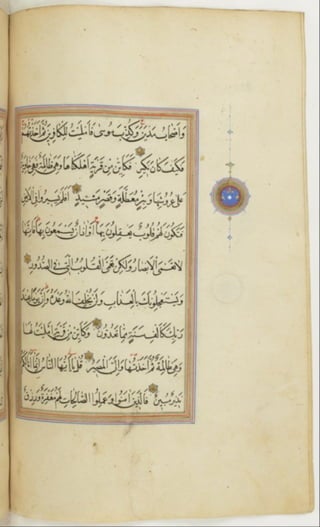 وَأَصْحَابُ مَدْيَنَ وَكُذِّبَ مُوسَى فَأَمْلَيْتُ لِلْكَافِرِينَ ثُمَّ أَخَذْتُهُمْ
فَكَيْفَ كَانَ نَكِيرِ فَكَأَيِّنْ مِنْ قَرْيَةٍ أَهْلَكْنَاهَا وَهِيَ ظَالِمَةٌ فَهِيَ خَاوِيَةٌ
عَلَى عُرُوشِهَا وَبِئْرٍ مُعَطَّلَةٍ وَقَصْرٍ مَشِيدٍ أَفَلَمْ يَسِيرُوا فِي الْأَرْضِ
فَتَكُونَ لَهُمْ قُلُوبٌ يَعْقِلُونَ بِهَا أَوْ آذَانٌ يَسْمَعُونَ بِهَا فَإِنَّهَا
لَا تَعْمَى الْأَبْصَارُ وَلَكِنْ تَعْمَى الْقُلُوبُ الَّتِي فِي الصُّدُورِ
وَيَسْتَعْجِلُونَكَ بِالْعَذَابِ وَلَنْ يُخْلِفَ اللَّهُ وَعْدَهُ وَإِنَّ يَوْمًا عِنْدَ
رَبِّكَ كَأَلْفِ سَنَةٍ مِمَّا تَعُدُّونَ وَكَأَيِّنْ مِنْ قَرْيَةٍ أَمْلَيْتُ لَهَا
وَهِيَ ظَالِمَةٌ ثُمَّ أَخَذْتُهَا وَإِلَيَّ الْمَصِيرُ قُلْ يَا أَيُّهَا النَّاسُ إِنَّمَا أَنَا لَكُمْ
نَذِيرٌ مُبِينٌ فَالَّذِينَ آمَنُوا وَعَمِلُوا الصَّالِحَاتِ لَهُمْ مَغْفِرَةٌ وَرِزْقٌ